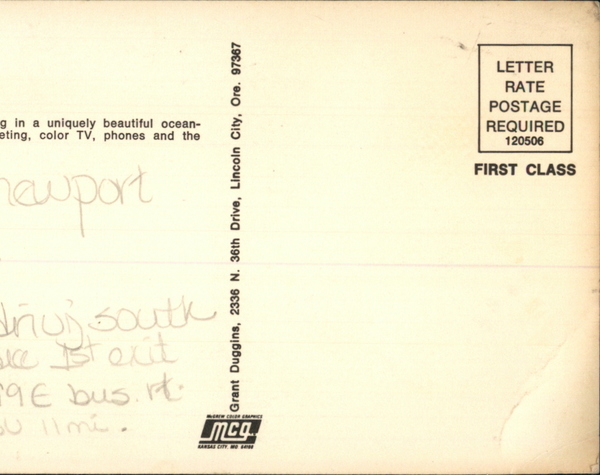 g in a uniquely beautiful ocean-
eting, color TV, phones and the
newport
south
1st exit
9E bus. rt.
11 mi.
Grant Duggins, 2336 N. 36th Drive, Lincoln City, Ore. 97367
McGREW COLOR GRAPHICS
mcg.
KANSAS CITY, MO 64108
LETTER
RATE
POSTAGE
REQUIRED
120506
FIRST CLASS